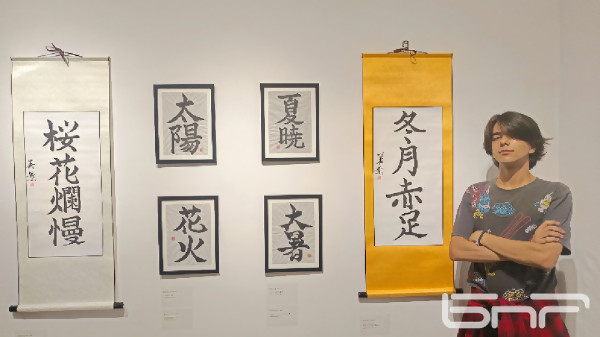 桜花爛慢
太陽
夏暁
花火
大暑
冬月赤足